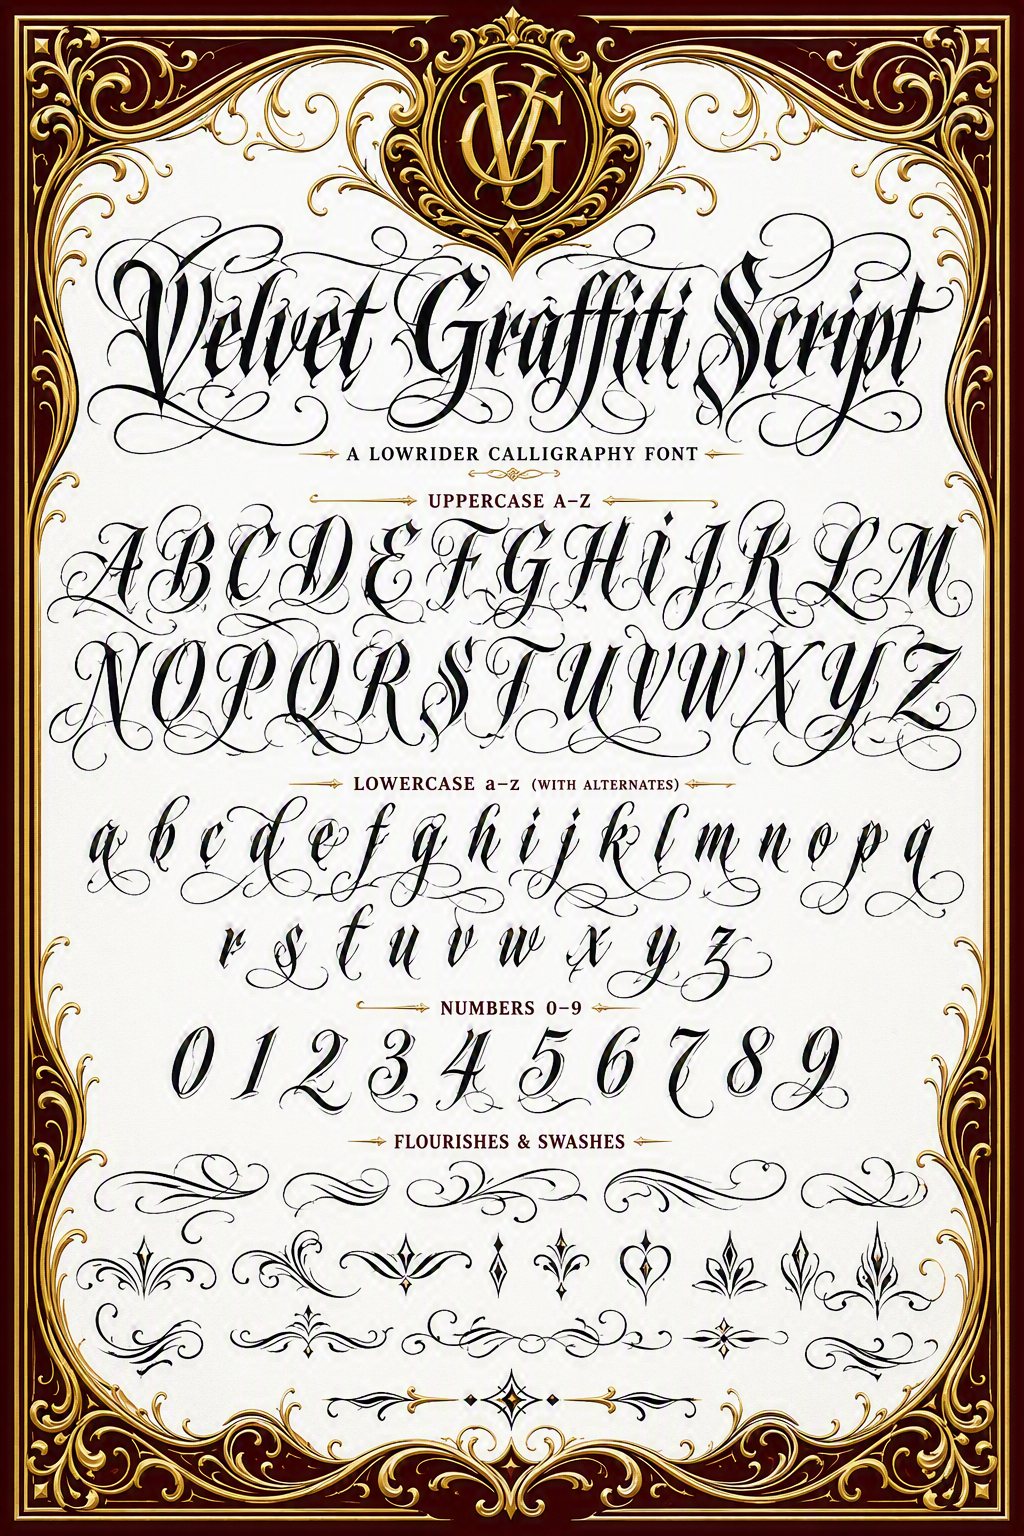 VG
Velvet Graffiti Script
A LOWRIDER CALLIGRAPHY FONT
UPPERCASE A–Z
A B C D E F G H I J K L M
N O P Q R S T U V W X Y Z
LOWERCASE a–z (WITH ALTERNATES)
a b c d e f g h i j k l m n o p q
r s t u v w x y z
NUMBERS 0–9
0 1 2 3 4 5 6 7 8 9
FLOURISHES & SWASHES